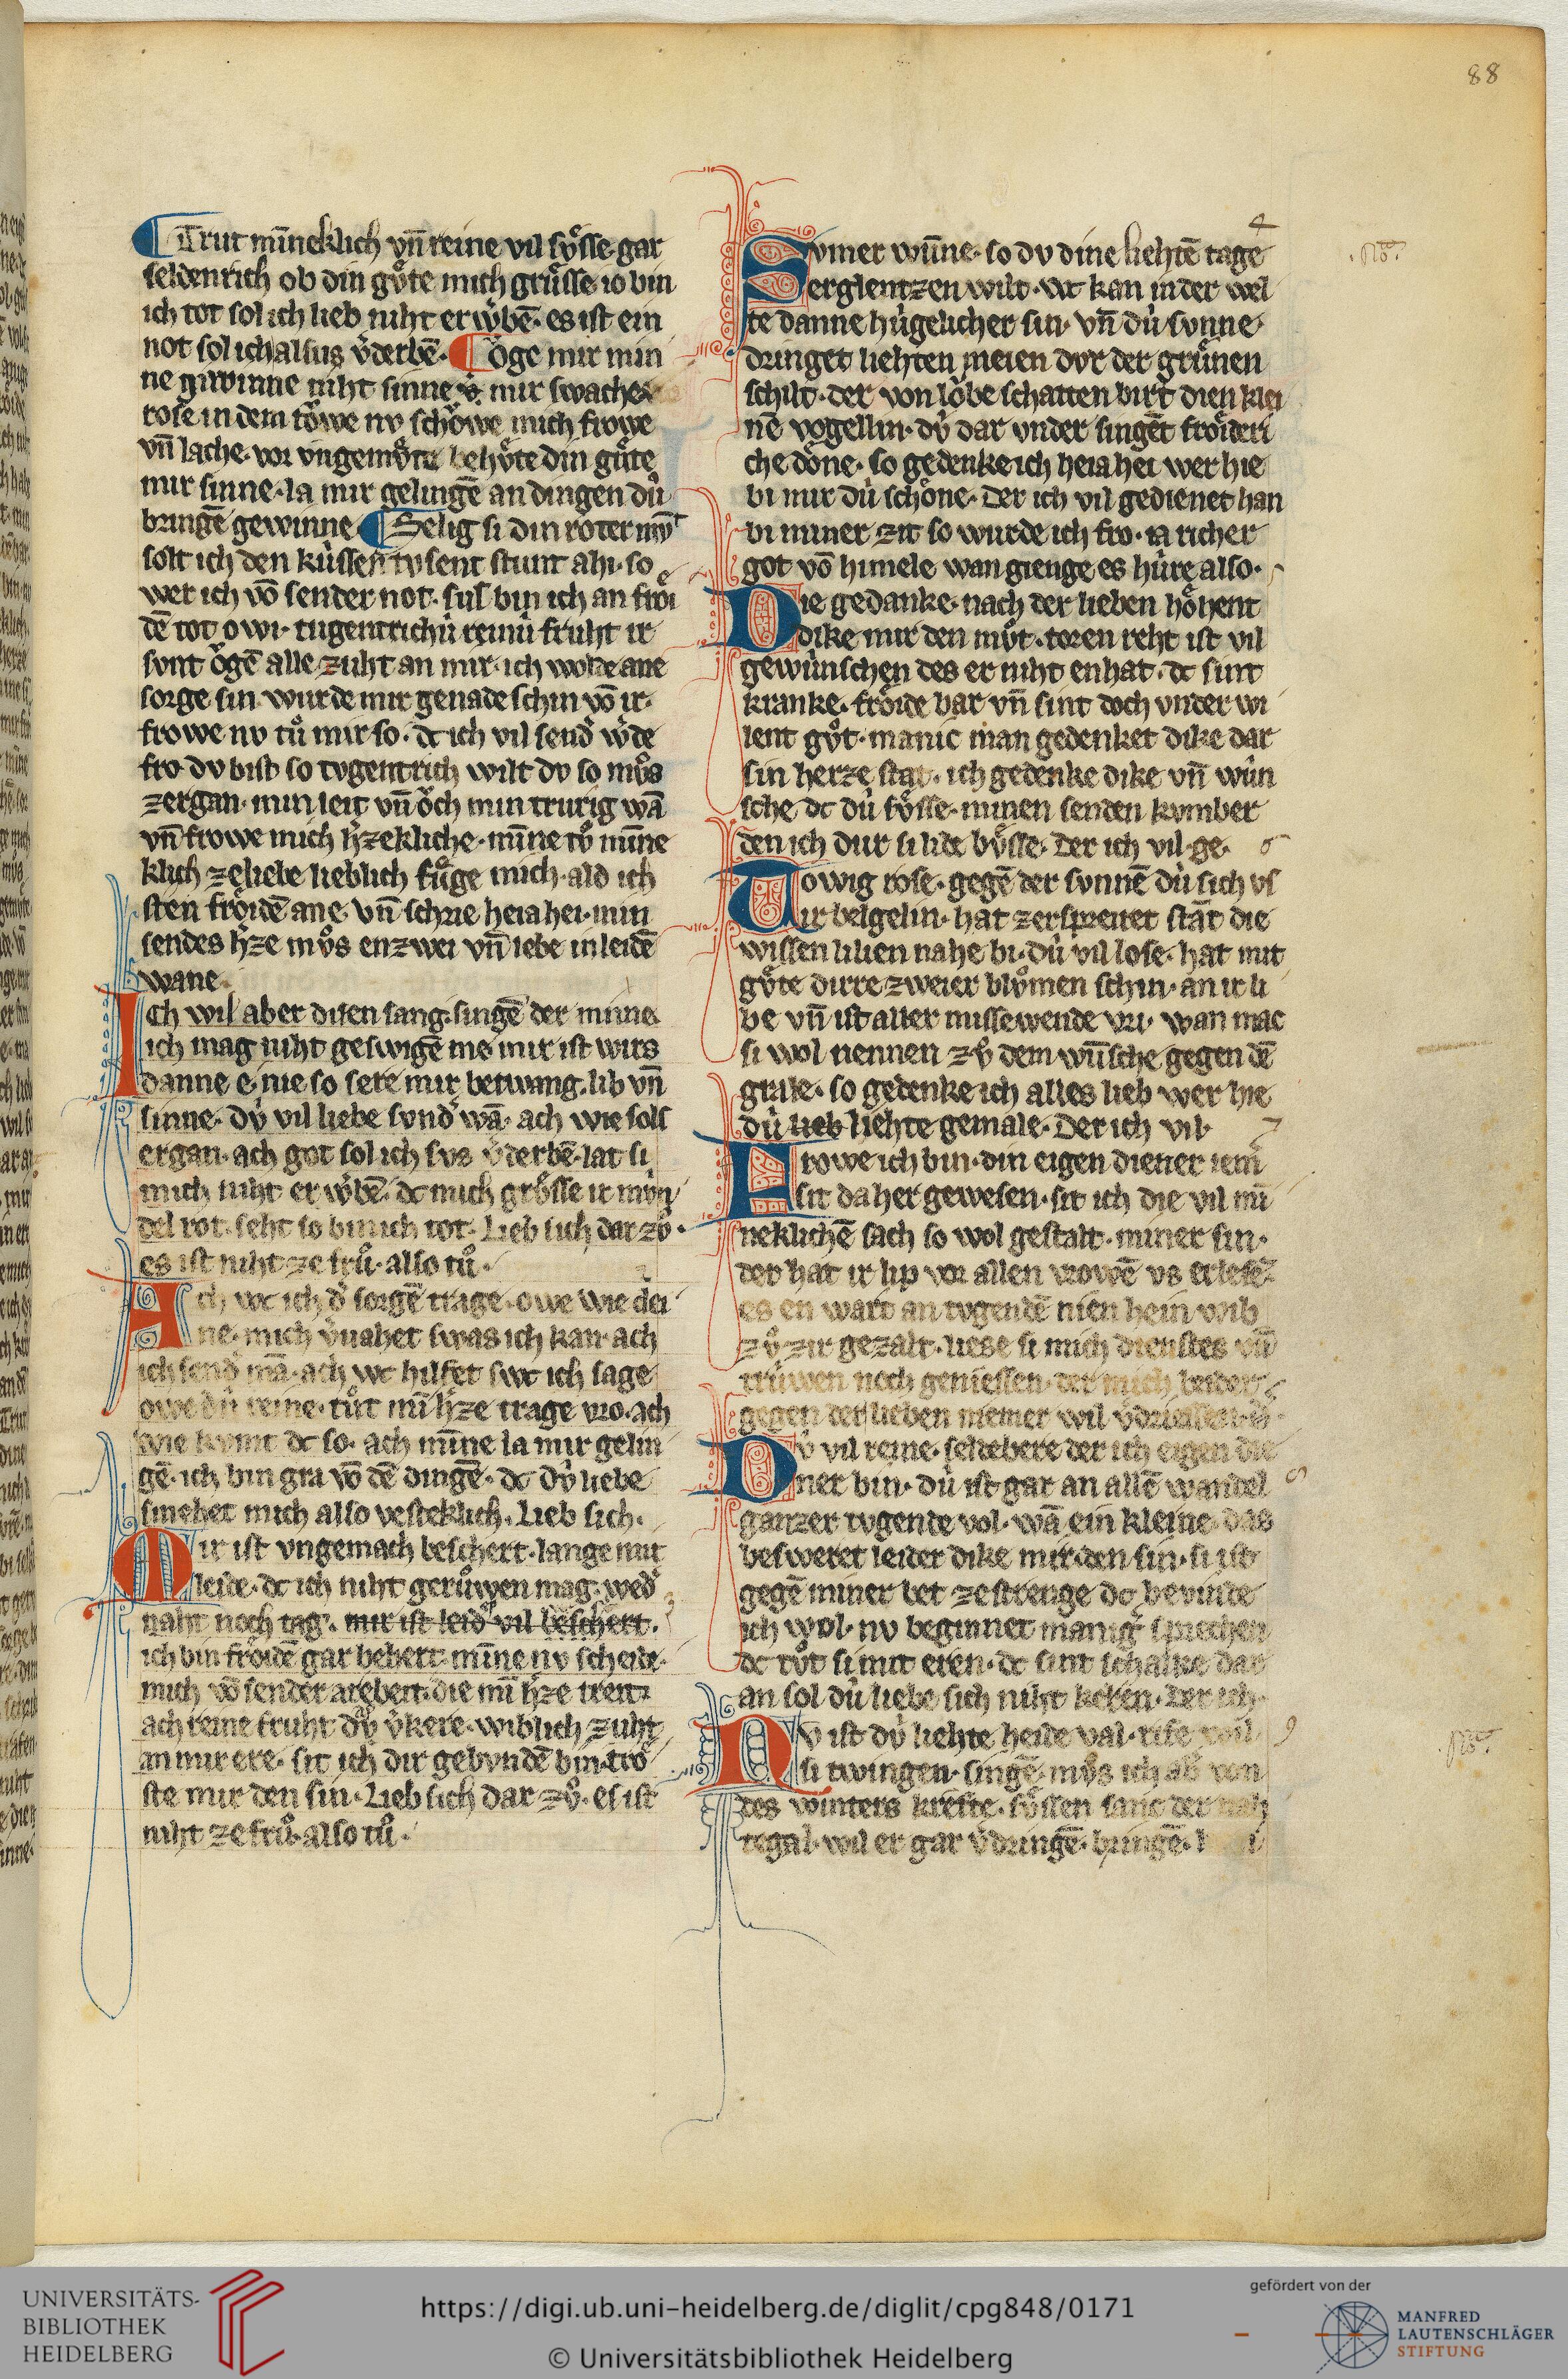 88
Trut mīneklich vn̄ reine vil sv̊sse gar
seldenrich ob din gv̊te mich grůsse io bin
ich tot sol ich lieb niht erw̓bē· es ist ein
not sol ich alsus v̓derbē· Ŏge mir min
ne giwinne niht sinne mir swache
rose in dem tŏwe nv schŏwe mich frowe
vn̄ lache· vor vngemv̊te behv̊te din gv̊te
mir sinne· la mir gelingē an dingen dv̓
bringē gewinne Selig si din roter mvͭ
solt ich den kússen tvsent stunt ahi· so
wer ich vō sender not· sus bin ich an frŏi
dē tot owi· tugentrichú reinú fruht ir
svnt ŏgē alle zuht an mir· ich wolde ane
sorge sin· wurde mir genade schin vō ir·
frowe nv tů mir so· dc ich vil send̓ w̓de
fro· dv bist so tvgentrich wilt dv so mv̊s
zergan· min leit vn̄ ŏch min trurig wā
vn̄ frowe mich h̓zekliche· mīne tv̊ mīne
klich zeliebe lieblich fůge mich· ald ich
sten frŏidē ane· vn̄ schrie heia hei· min
sendes h̓ze mv̊s enzwei vn̄ lebe in leidē
wane·
Ich wil aber disen sang· singē der minne
ich mag niht geswigē me mir ist wirs
danne e· nie so sere mir betwang· lib vn̄
sinne· dv̓ vil liebe svnd̓ wā· ach wie solſ
ergan· ach got sol ich svs v̓derbē· lat si
mich niht erw̓bē· dc mich grv̊sse ir mvn
del rot· seht so bin ich tot· Lieb sich dar zv̊·
es ist niht ze frů· also tů·
Ach wc ich d̓ sorgē trage· owe wie clei
ne· mich v̓nahet swas ich kan· ach
ich send̓ mā· ach wc hilfet swc ich sage
owe dú reine· tůt mī h̓ze trage vro· ach
wie kvmt dc so· ach mīne la mir gelin
gē· ich bin gra vō dē dingē· dc dv̓ liebe
smehet mich also vesteklich· Lieb sich·
Mir ist vngemach beschert· lange mit
leide· dc ich niht gerůwen mag· wed̓
naht noch tag· mir ist leid̓ vil beschert·
ich bin frŏidē gar behert· mīne nv scheide·
mich vō sender arebeit· die mī h̓ze treit·
ach reine fruht dv̓ v̓kere· wiblich zuht
an mir ere· sit ich dir gebvndē bin· trŏ
ste mir den sin· Lieb sich dar zv̊· es ist
niht ze frů· also tů·
4
Svmer wūne· so dv dine liehtē tage
erglentzen wilt· wc kan in der wel
te danne húgelicher sin· vn̄ dú svnne
dringet liehten meien dvr der grůnen
schilt· der von lŏbe schatten birt dien klei
nē vogellin· dv̓ dar vnder singēt frŏideri
che dŏne· so gedenke ich heia hei wer hie
bi mir dú schŏne· Der ich vil gedienet han
bi miner zit so wurde ich fro· ia richer
got vō himele wan gienge es húre also·
Die gedanke· nach der lieben hŏhent
dike mir den mv̊t· toren reht ist vil
gewúnschen des er niht enhat· dc sint
kranke· frŏide bar vn̄ sint doch vnder wi
lent gv̊t· manic man gedenket dike dar
sin herze stat· ich gedenke dike vn̄ wún
sche dc dú sv̊sse· minen senden kvmber
den ich dur si lide bv̊sse· Der ich vil ge· 6
Towig rose· gegē der svnnē dú sich vſ
ir belgelin· hat zerspreitet stāt die
wissen lilien nahe bi· dú vil lose· hat mit
gv̊te dirre zweier blv̊men schin· an ir li
be vn̄ ist aller missewende vri· wan mac
si wol nennen zv̊ dem wūsche gegen dē
grale· so gedenke ich alles lieb wer hie
dú lieb liehte gemale· Der ich vil·
7
Frowe ich bin· din eigen diener iem̓
sit da her gewesen· sit ich die vil mī
neklichē sach so wol gestalt· miner sin·
der hat ir lip vor allen vrowē vs erlesē
es en wart an tvgendē nien hein wib
zv̊ zir gezalt· liesse si mich dienstes vn̄
trúwen noch geniessen· der mich beider
gegen der lieben niemer wil v̓driessen·
Dv̓ vil reine· seldebere der ich eigen die
ner bin· dú ist gar an allē wandel
ganzer tvgende vol· wā ein kleine· das
besweret leider dike mir· den sin· si ist
gegē miner bet ze strenge dc bevinde
ich wol· nv beginnet manig̓ sprechen
dc tv̊t si mit eren· dc sint schalke dar
an sol dú liebe sich niht keren· Der ich·
9
Nv ist dv̓ liehte heide val· rife
si twingen· singē· mv̊s ich ab̓ von
des winters krefte· sv̊ssen sanc der nah
tegal· wil er gar v̓dringē· bringē·
UNIVERSITÄTS-
BIBLIOTHEK
HEIDELBERG
https://digi.ub.uni-heidelberg.de/diglit/cpg848/0171
© Universitätsbibliothek Heidelberg
gefördert von der
MANFRED
LAUTENSCHLÄGER
STIFTUNG